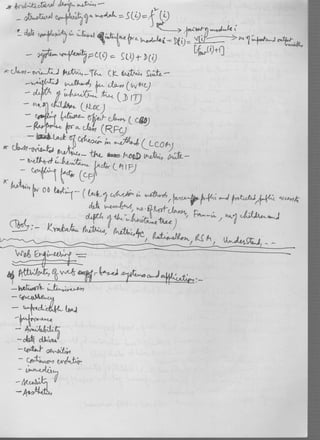 * Architectural design metrics -
- structural complexity of a module = S(i) = f²out(i)
→ fan out of module i
* data complexity in internal interface for a module i - D(i) = v(i) / [fout(i)+1] → no of input and output variables
- system complexity = C(i) = S(i) + D(i)
* Class-oriented Metrics - The CK Metrics Suite -
- weighted methods per class (WMC)
- depth of inheritance tree (DIT)
- no. of children (NOC)
- coupling between object classes (CBO)
- Response for a class (RFC)
- Lack of cohesion in methods (LCOM)
* Class-oriented metrics - the MOOD metrics suite -
- Method inheritance factor (MIF)
- Coupling factor (CF)
* Metrics for OO testing - (Lack of cohesion in methods, percent public and protected, public access
data members, no. of root classes, Fan-in, no. of children and
depth of the inheritance tree)
(Tools :- Krakatau Metrics, Metrics4C, Rationalrose, RSM, Understand, - -
Web Engineering =
Attributes of web-based systems and applications :-
- network intensiveness
- concurrency
- unpredictable load
- performance
- Availability
- data driven
- content sensitive
- Continuous evolution
- immediacy
- security
- Aesthetics